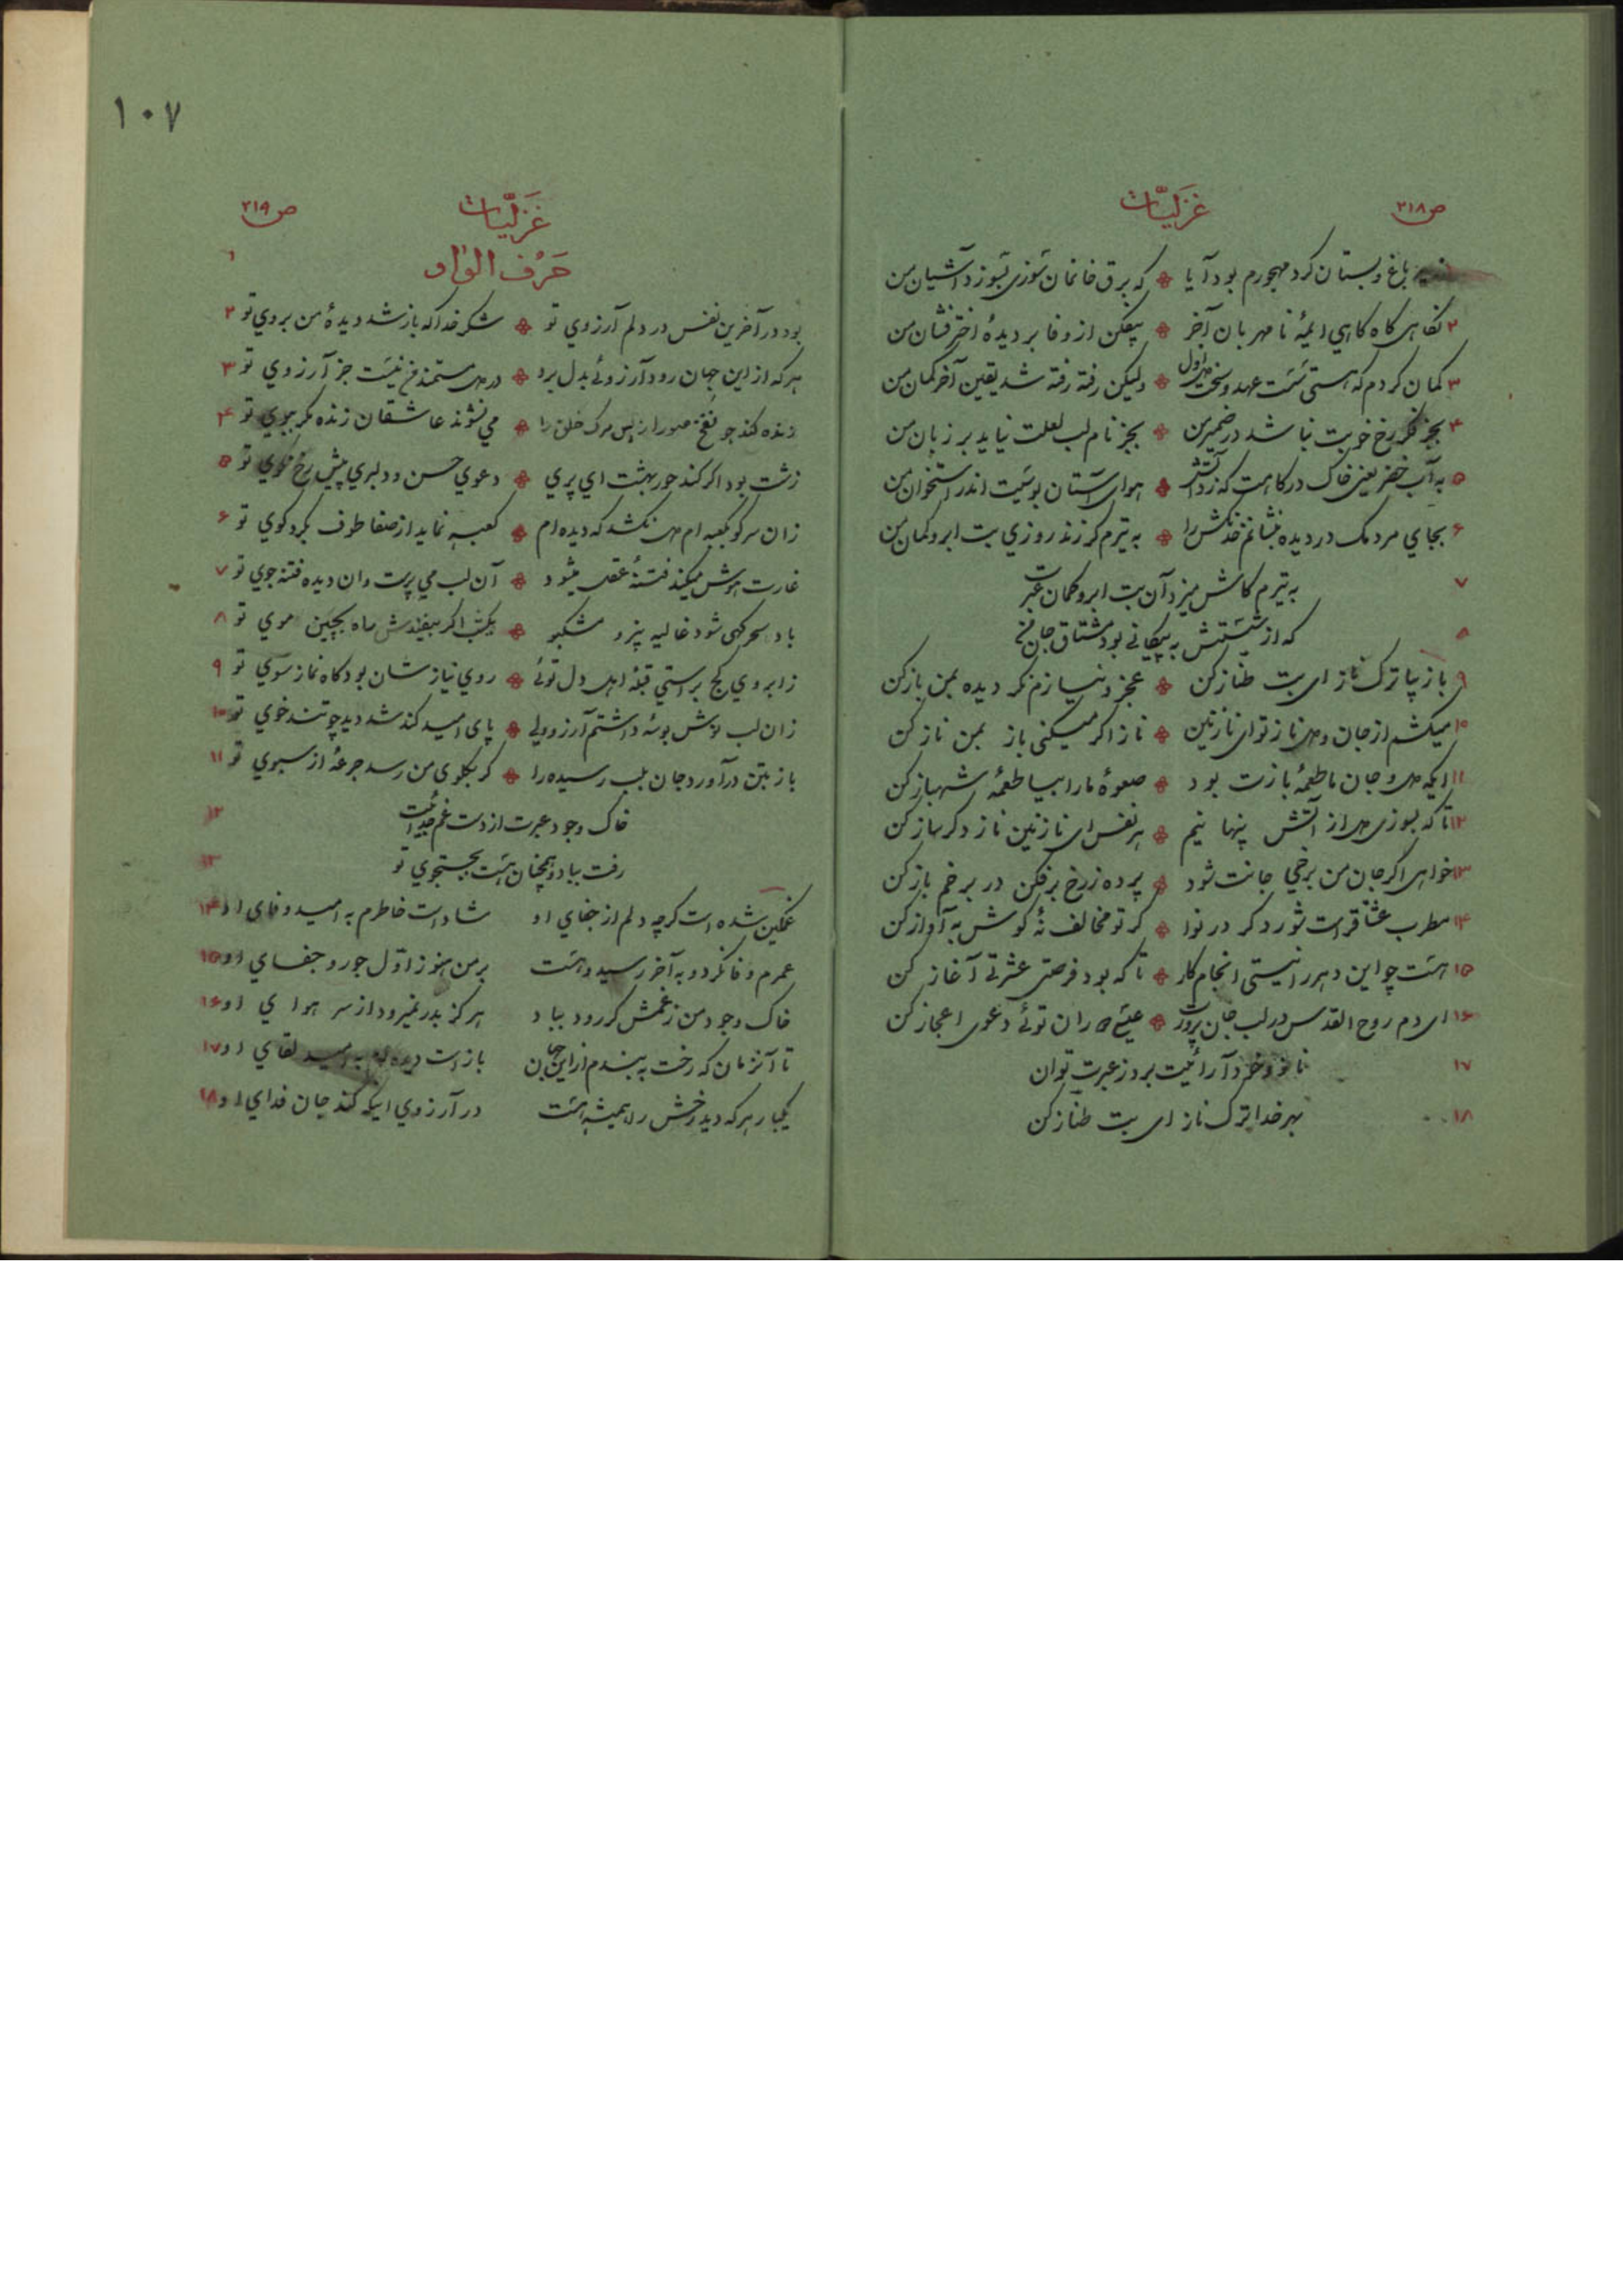 ص ۲۱۸
غزلیّات
باغ و بستان کرد مهجورم بود آیا که برق خانمان سوزی بسوزد آشیان من
۲ نکاهی کاه کاهی ایمهٔ نا مهربان آخر بیفکن از وفا بر دیدهٔ اختر فشان من
۳ کمان کردم که هستی سست عهد و سخت دل اول ولیکن رفته رفته شد یقین آخر کمان من
۴ بجز فکر رخ خوبت نباشد در ضمیر من بجز نام لب لعلت نیاید بر زبان من
۵ به آب خضر یعنی خاک درکاهت که زد آتش هوای آستان بوسیت اندر استخوان من
۶ بجای مردمک در دیده بنشانم خدنکش را به تیرم کر زند روزی بت ابرو کمان من
۷ به تیرم کاش میزد آن بت ابرو کمان عبرت
۸ که از شستش به پیکانی بود مشتاق جان من
۹ باز بیا ترک ناز ای بت طناز کن عجز و نیازم نکر دیده بمن باز کن
۱۰ میکشم از جان و دل ناز تو ای نازنین ناز اکر میکنی باز بمن ناز کن
۱۱ ایکه دل و جان ما طعمهٔ بازت بود صعوهٔ ما را بیا طعمهٔ شهباز کن
۱۲ تا که بسوزی دل از آتش پنها نیم هر نفس ای نازنین ناز دکر ساز کن
۱۳ خواهی اکر جان من برخی جانت شود پرده ز رخ برفکن در برخم باز کن
۱۴ مطرب عشاق راست شور دکر در نوا کر تو مخالف نهٔ کوش به آواز کن
۱۵ هست چو این دهر را نیستی انجام کار تا که بود فرصتی عشرتی آغاز کن
۱۶ ای دم روح القدس در لب جان پرورت عیسی دوران توئی دعوی اعجاز کن
۱۷ ناز خرد آرائیت برد ز عبرت توان
۱۸ بهر خدا ترک ناز ای بت طناز کن
۱۰۷
غزلیّات
ص ۲۱۹
۱ حرف الواو
بود در آخرین نفس در دلم آرزوی تو شکر خدا که باز شد دیدهٔ من بروی تو ۲
هر که از این جهان رود آرزوئی بدل برد در دل مستمند من نیست جز آرزوی تو ۳
زنده کند چو نفخهٔ صور از پس مرک خلق را می نشوند عاشقان زنده مکر ببوی تو ۴
زشت بود اکر کند حور بهشت ای پری دعوی حسن و دلبری پیش رخ نکوی تو ۵
زان سر کو بکعبه ام دل نکشد که دیده ام کعبه نماید از صفا طوف بکرد کوی تو ۶
غارت هوش میکند فتنهٔ عقل میشود آن لب می پرست وان دیده فتنه جوی تو ۷
باد سحر کهی شود غالیه بیز و مشکبو یکشب اکر بیفتدش راه بچین موی تو ۸
ز ابروی کج براستی قبلهٔ اهل دل توئی روی نیاز شان بود کاه نماز سوی تو ۹
زان لب نوش بوسهٔ داشتم آرزو ولی پای امید کند شد دید چو تند خوی تو ۱۰
باز بتن در آورد جان بلب رسیده را کر بکلوی من رسد جرعهٔ از سبوی تو ۱۱
خاک وجود عبرت از دست غم جدائیت ۱۲
رفت بباد و همچنان هست بجستجوی تو ۱۳
غمکین شده است کرچه دلم از جفای او شاد است خاطرم به امید وفای او ۱۴
عمرم وفا نکرد و به آخر رسید و هست بر من هنوز اول جور و جفای او ۱۵
خاک وجود من ز غمش کر رود بباد هرکز بدر نمیرود از سر هوای او ۱۶
تا آنزمان که رخت به بندم از این جهان باز است دیده ام به امید لقای او ۱۷
یکبار هر که دید رخش را همیشه هست در آرزوی اینکه کند جان فدای او ۱۸